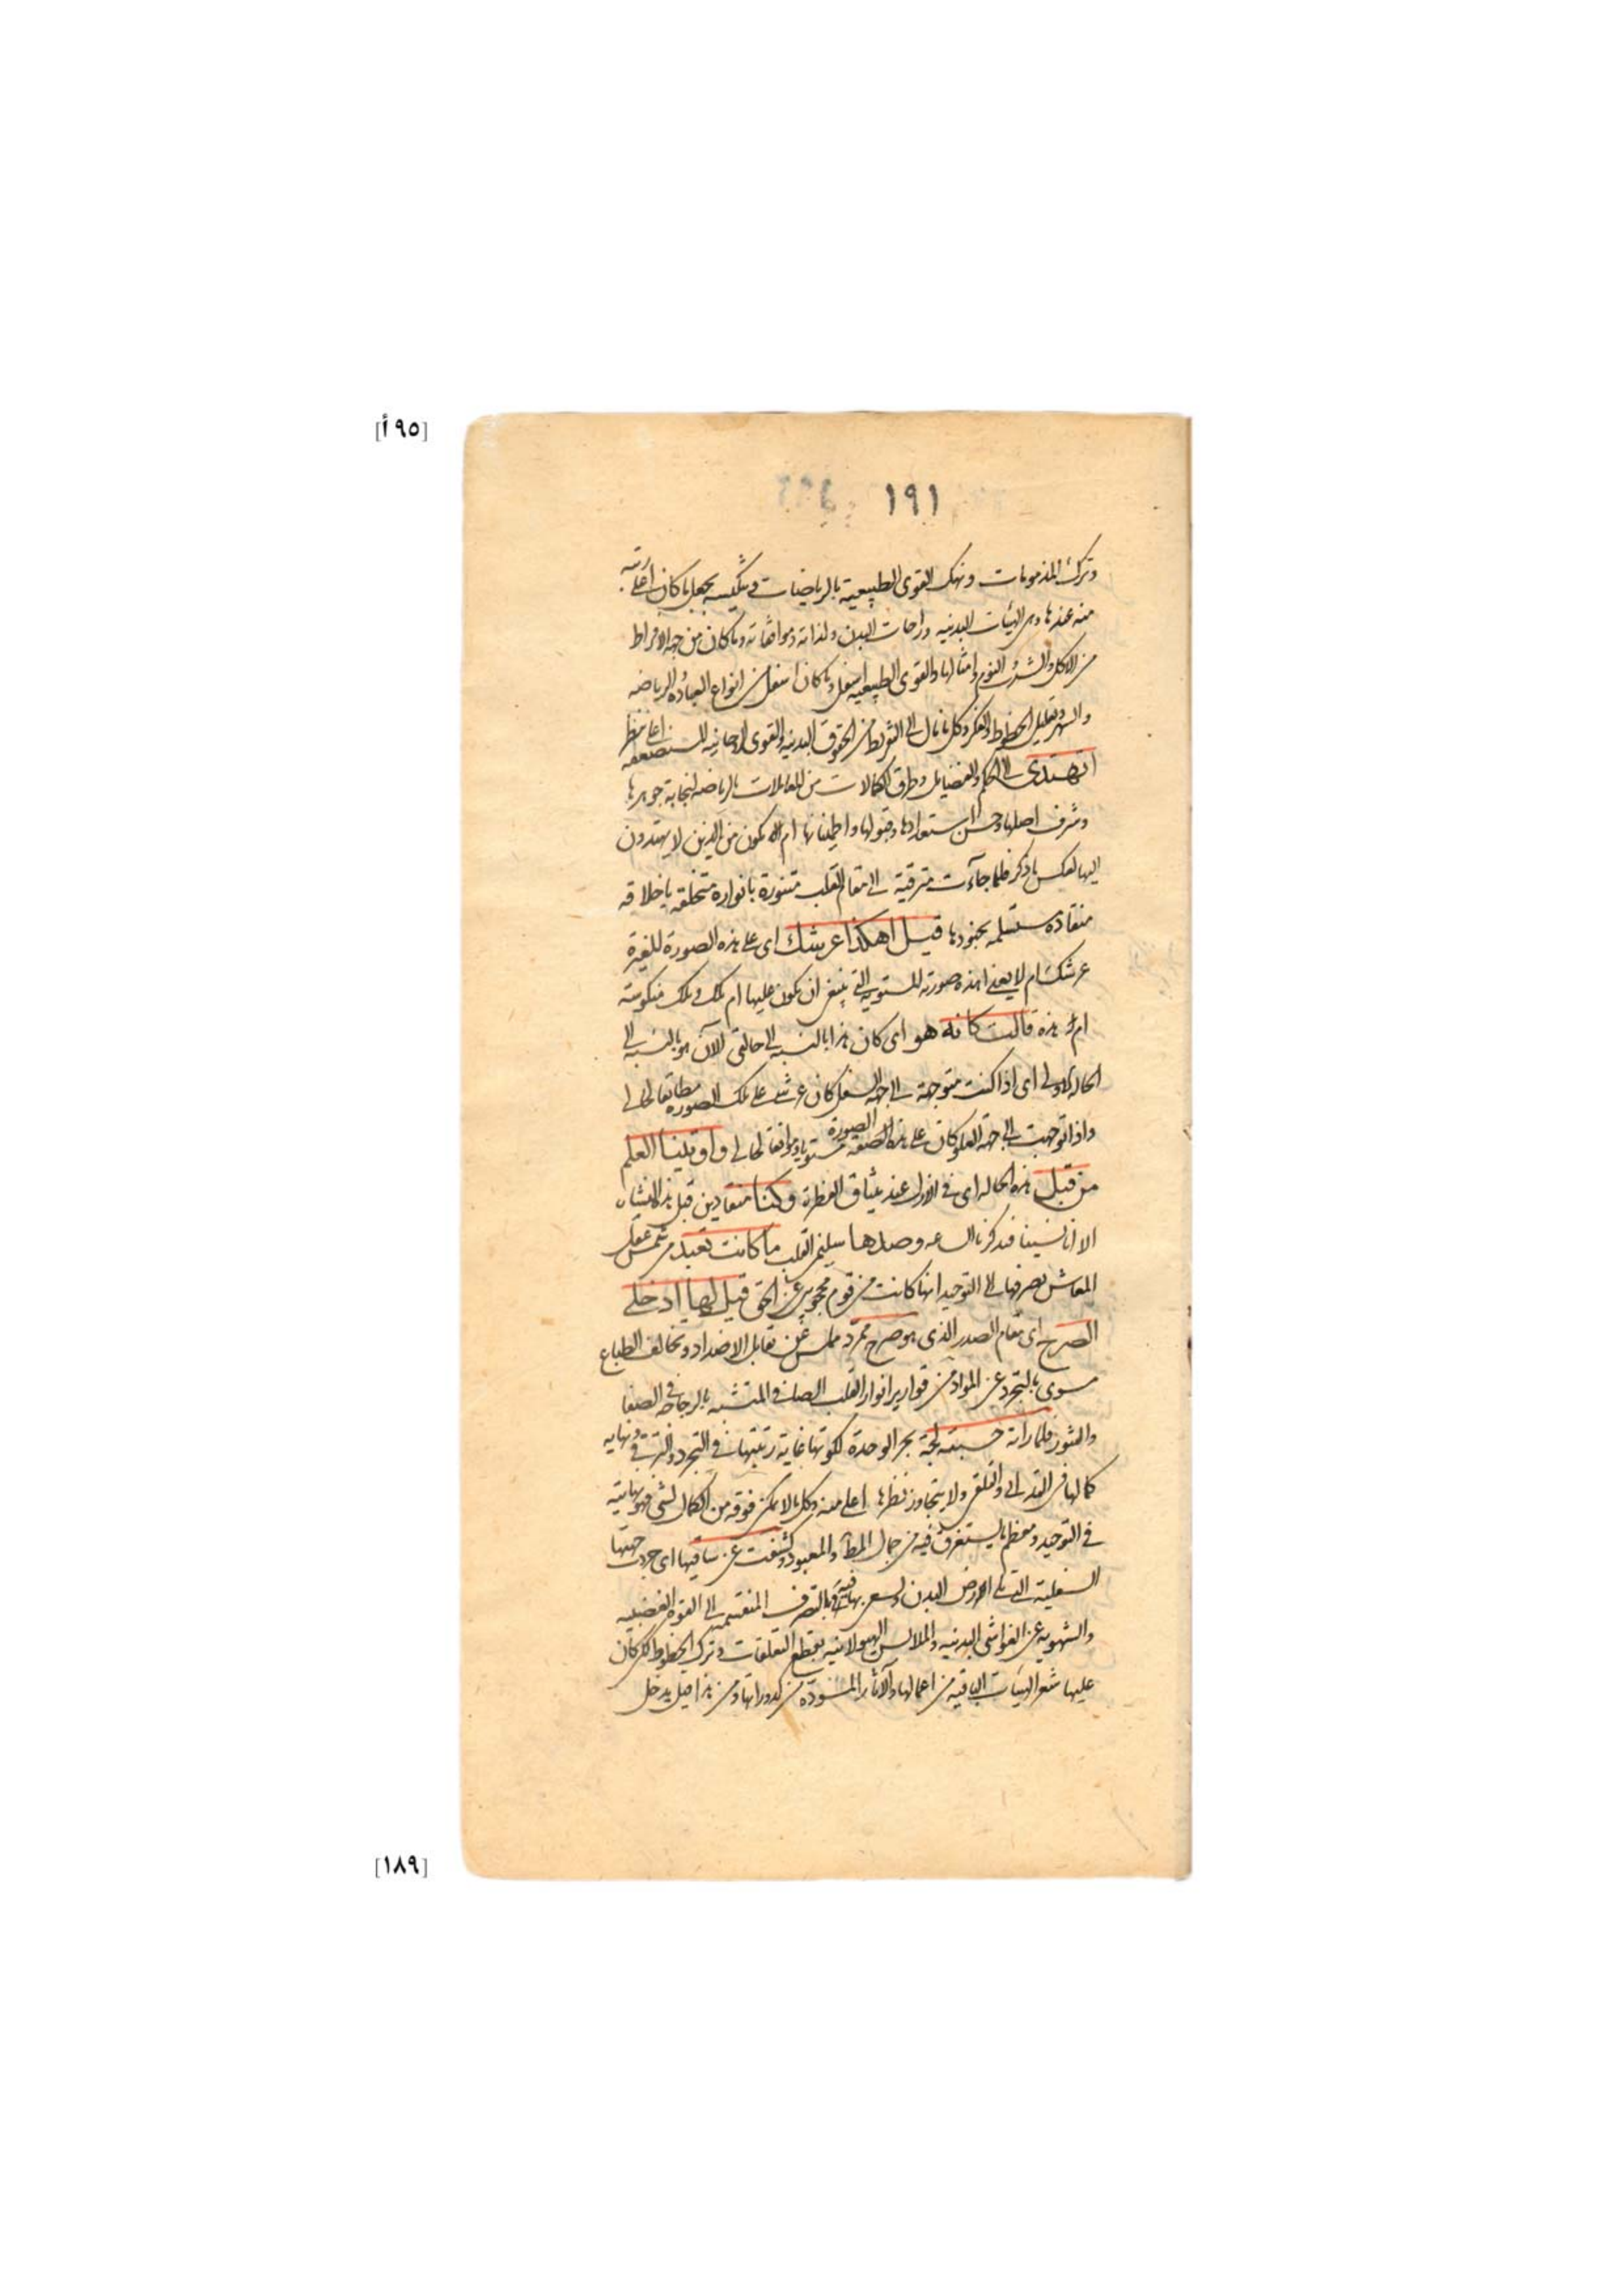 [٩٥أ]
١٩١
وترك المذمومات ونهك القوى الطبيعية بالرياضات وتنكيسه بجعل ما كان اعلى رتبة
منه عندها وهى الهيئات البدنيه وراحات البدن ولذاته وموافقاته وما كان من جهة الافراط
من الاكل والشرب والنوم وامثالها والقوى الطبيعيه اسفل وما كان اسفل من انواع العبادة والرياضه
والسهر وتقليل الحظوظ والفكر وكل ما مال الى التفريط من الحقوق البدنيه والقوى الروحانيه المستضعفه اعلى ننظر
اتهتدى الى الحكم والفضايل وطرق الكمالات من المعاملات بالرياضه لنجابة جوهرها
وشرف اصلها وحسن استعدادها وقبولها واطمينانها ام لا تكون من الذين لا يهتدون
اليها لعكس ما ذكر فلما جآءت مترقية الى مقام القلب متنورة بانواره متخلقه باخلاقه
منقاده مستسلمه بجنودها قيل اهكذا عرشك اى على هذه الصورة المغيرة
عرشك ام لا يعنى اهذه صورته المستويه التى ينبغى ان يكون عليها ام تلك وتلك منكوسته
ام هذه قالت كانه هو اى كان هذا بالنسبه الى حالتى الآن هو بالنسبه الى
الحاله الاولى اى اذا كنت متوجهة الى الجهة السفلى كان عرشى على تلك الصورة مطابقا لحالى
واذا توجهت الى جهة العلو كان على هذه الصفة الصورة مستويا وموافقا لحالى واوتينا العلم
من قبل هذه الحاله اى فى الازل عند ميثاق الفطرة وكنا منقادين قبل هذه النشاه
الا انا نسينا فتذكرنا الساعه وصدها سليمن القلب ما كانت تعبد من شمس عقل
المعاش بصرفها الى التوحيد انها كانت من قوم محجوبين عن الحق قيل لها ادخلى
الصرح اى مقام الصدر الذى هو صرح ممرد مملس عن تقابل الاضداد وتخالف الطباع
مسوى بالتجرد عن المواد من قوارير انوار القلب الصافى المتشبه بالزجاجه فى الصفا
والنور فلما راته حسبته لجة بحر الوحدة لكونها غاية رتبتها فى التجرد والترقى ونهايه
كمالها فى التدلى والتلقى ولا يتجاوز نظرها اعلى منه وكل ما لا يمكن فوقه من الكمال لشى فهو نهايته
فى التوحيد ومعظم ما يستغرق فيه من جمال المطلق والمعبود وكشفت عن ساقيها اى جردت جهتها
السفلية التى تلى البدن وتسعى بها فيه بالتصرف المنقسمه الى القوة الغضبيه
والشهويه عن الغواشى البدنيه والملابس الهيولانيه بقطع التعلقات وترك الحظوظ لكن كان
عليها شعر الهيئات الباقيه من اعمالها والآثار المسودة من كدوراتها ومن هذا قيل يدخل
[١٨٩]